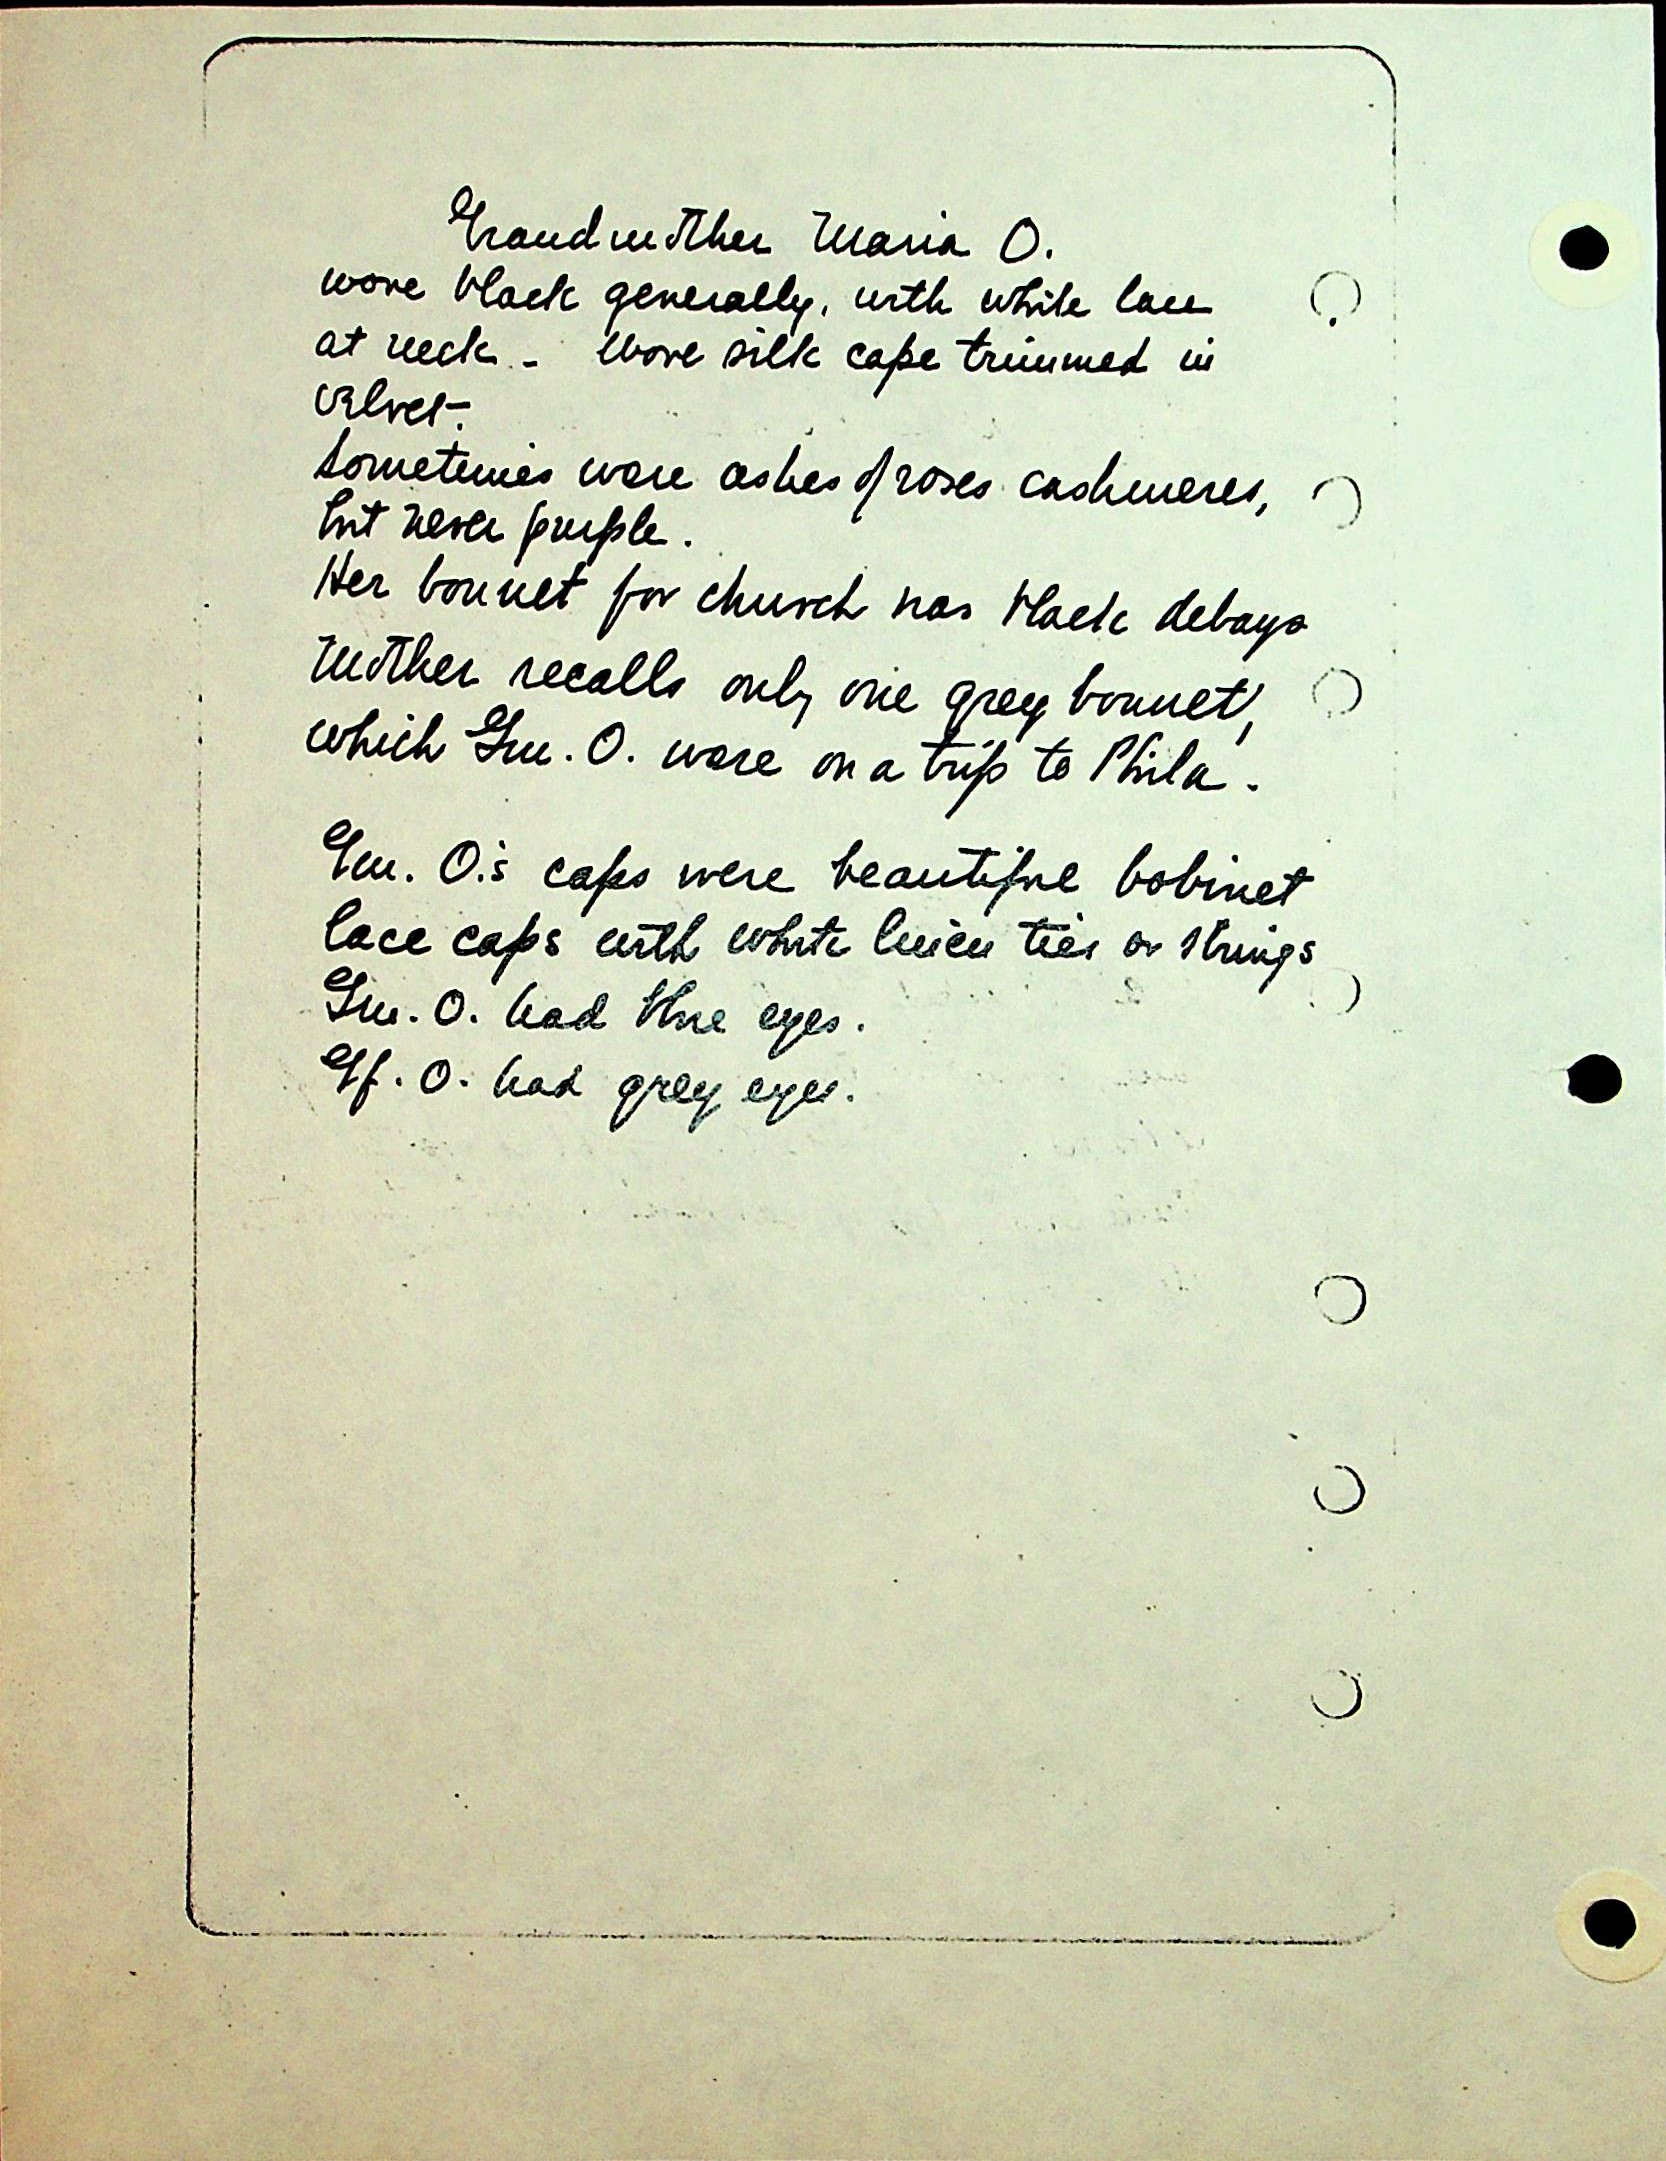 Grandmother Maria O.
wore black generally, with white lace
at neck - Wore silk cape trimmed in
velvet.
Sometimes wore ashes of roses cashmeres,
but never purple.
Her bonnet for church was black debays
Mother recalls only one grey bonnet,
which Gm. O. wore on a trip to Phila.
Gm. O.'s caps were beautiful bobinet
lace caps with white linen ties or strings
Gm. O. had blue eyes.
Gf. O. had grey eyes.